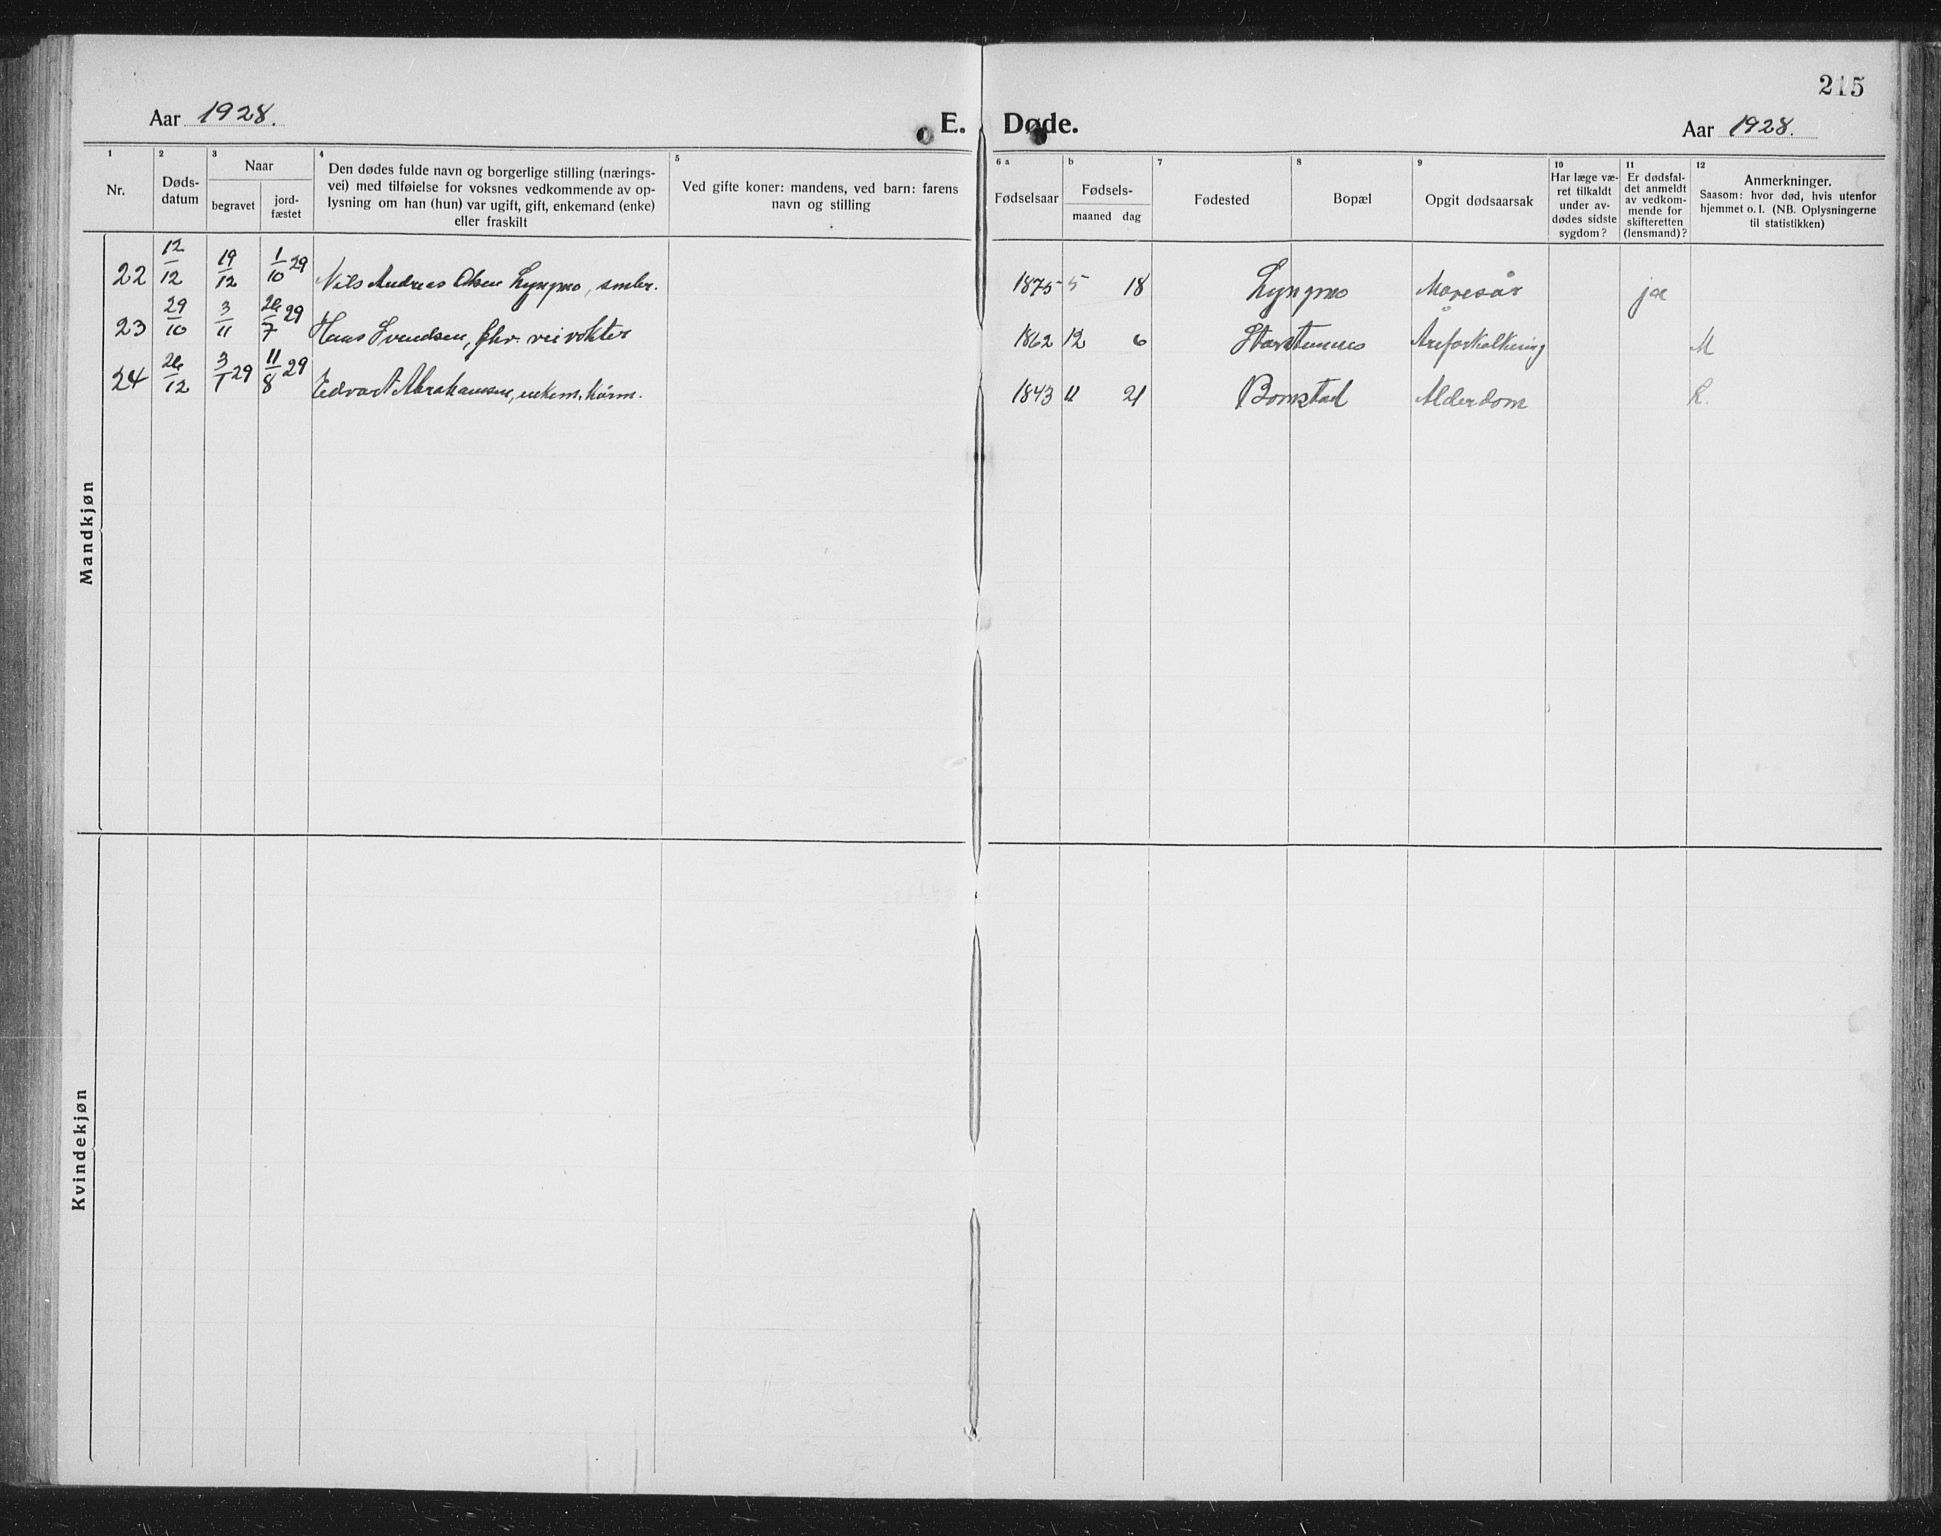 215
Aar 1928.
E. Døde.
Aar 1928.
1 2 3 4 5 6 a b 7 8 9 10 11 12
Nr.
Døds-
datum
Naar
begravet
jord-
fæstet
Den dødes fulde navn og borgerlige stilling (nærings-
vei) med tilføielse for voksnes vedkommende av op-
lysning om han (hun) var ugift, gift, enkemand (enke)
eller fraskilt
Ved gifte koner: mandens, ved barn: farens
navn og stilling
Fødselsaar
Fødsels-
maaned dag
Fødested
Bopæl
Opgit dødsaarsak
Har læge væ-
ret tilkaldt
under av-
dødes sidste
sygdom?
Er dødsfal-
det anmeldt
av vedkom-
mende for
skifteretten
(lensmand)?
Anmerkninger.
Saasom: hvor død, hvis utenfor
hjemmet o. l. (NB. Oplysningerne
til statistikken)
22 12/12 19/12 1/10 29 Nils Andreas Olsen Lyngmo, smbr. 1875 5 18 Lyngmo Mavesår ja
23 29/10 3/11 26/7 29 Hans Svendsen, fhv. veivokter 1862 12 6 Storstennes Åreforkalkning M
24 26/12 3/1 29 11/8 29 Edvart Abrahamsen, enkem. kårm. 1843 11 21 Bomstad Alderdom K.
Mandkjøn
Kvindekjøn